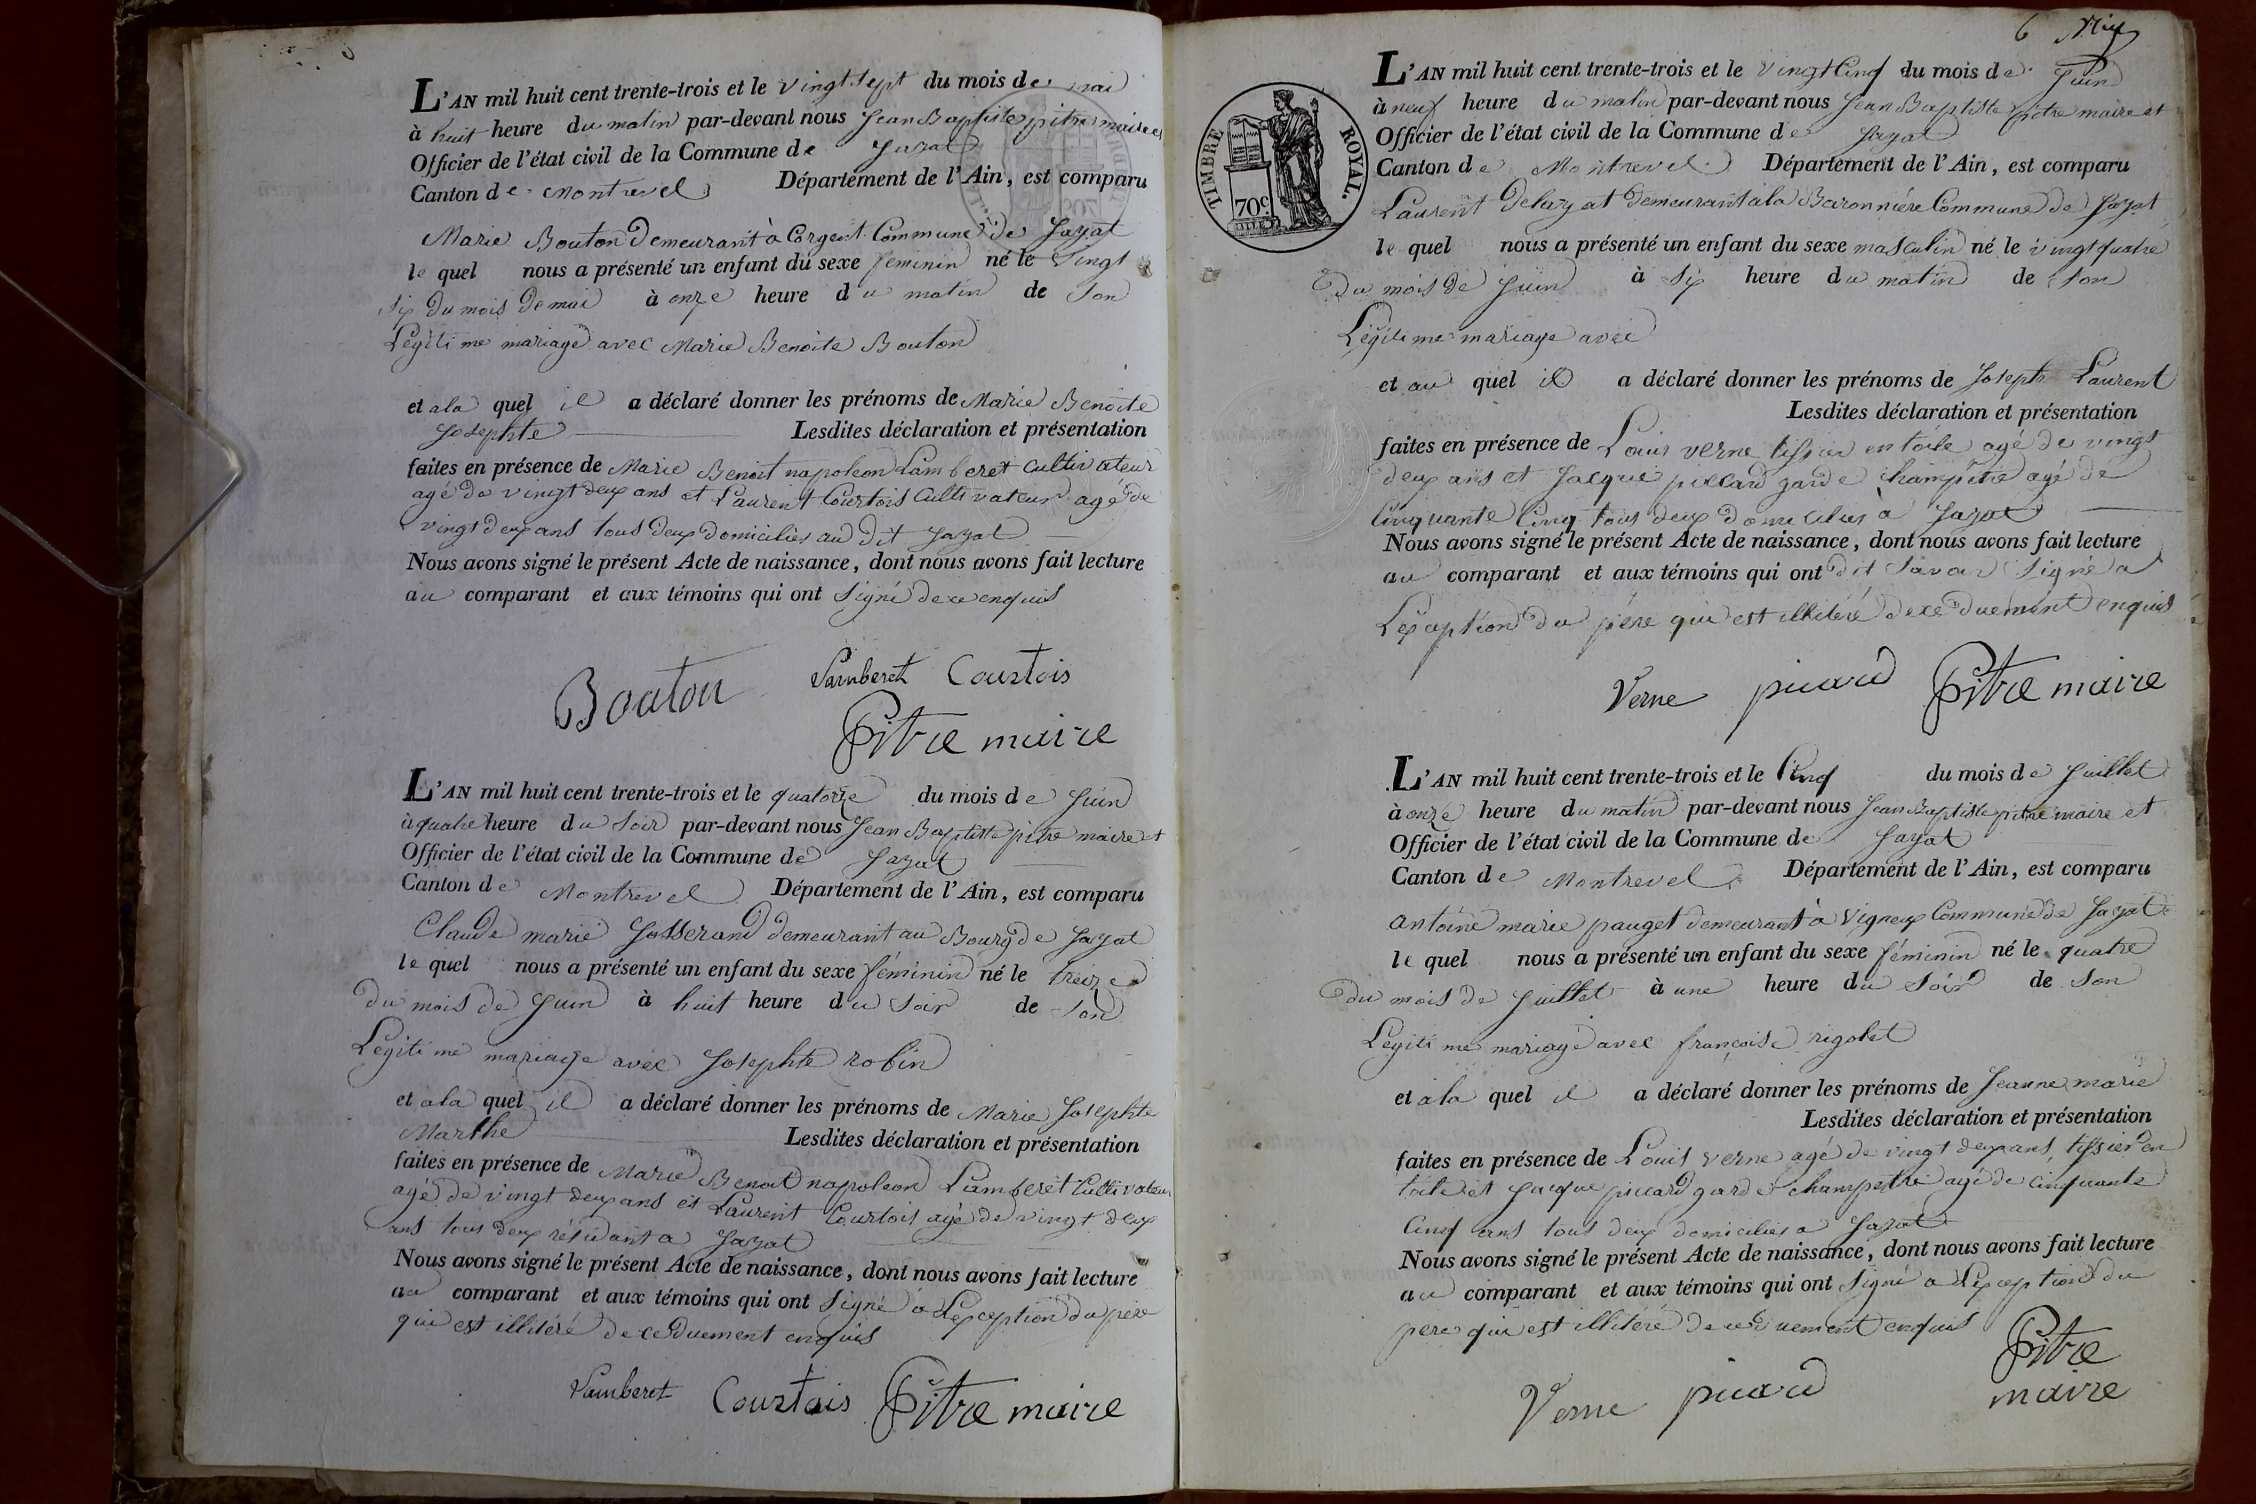 L'AN mil huit cent trente-trois et le vingt sept du mois de mai
à huit heure du matin par-devant nous Jean Baptiste pitre maire et
Officier de l'état civil de la Commune de Jayat
Canton de Montrevel Département de l'Ain, est comparu
Marie Bouton demeurant à Corgent Commune de Jayat
le quel nous a présenté un enfant du sexe feminin né le vingt
six du mois de mai à onze heure du matin de son
Légitime mariage avec Marie Benoite Bouton
et ala quel il a déclaré donner les prénoms de Marie Benoite
Josephte Lesdites déclaration et présentation
faites en présence de Marie Benoit napoleon Lamberet cultivateur
agé de vingt deux ans et Laurent Courtois Cultivateur agé de
vingt deux ans tous deux domiciliés au dit Jayat
Nous avons signé le présent Acte de naissance, dont nous avons fait lecture
au comparant et aux témoins qui ont signé de ce enquis
Bouton Lamberet Courtois
Pitre maire
L'AN mil huit cent trente-trois et le quatorze du mois de Juin
à quatre heure du soir par-devant nous Jean Baptiste pitre maire et
Officier de l'état civil de la Commune de Jayat
Canton de Montrevel Département de l'Ain, est comparu
Claude marie Josserand demeurant au Bourg de Jayat
le quel nous a présenté un enfant du sexe féminin né le treize
du mois de Juin à huit heure du soir de son
Légitime mariage avec Josephte robin
et ala quel il a déclaré donner les prénoms de Marie Josephte
Marthe Lesdites déclaration et présentation
faites en présence de Marie Benoit napoleon Lamberet Cultivateur
agé de vingt deux ans et Laurent Courtois agé de vingt deux
ans tous deux résidant a Jayat
Nous avons signé le présent Acte de naissance, dont nous avons fait lecture
au comparant et aux témoins qui ont signé à L'exception du père
qui est illitéré de ce duement enquis
Lamberet Courtois Pitre maire
6
L'AN mil huit cent trente-trois et le vingt Cinq du mois de Juin
à neuf heure du matin par-devant nous Jean Baptiste pitre maire et
Officier de l'état civil de la Commune de Jayat
Canton de Montrevel Département de l'Ain, est comparu
TIMBRE ROYAL.
70c
Laurent Delayat demeurant à la Baronnière Commune de Jayat
le quel nous a présenté un enfant du sexe masculin né le vingt quatre
du mois de Juin à six heure du matin de son
Légitime mariage avec
et au quel il a déclaré donner les prénoms de Joseph Laurent
Lesdites déclaration et présentation
faites en présence de Louis verne tissier en toile agé de vingt
deux ans et Jacque piccard garde champêtre agé de
Cinquante Cinq tous deux domiciliés à Jayat
Nous avons signé le présent Acte de naissance, dont nous avons fait lecture
au comparant et aux témoins qui ont dit savoir signé a
L'exception du père qui est illitéré de ce duement enquis
Verne picard Pitre maire
L'AN mil huit cent trente-trois et le Cinq du mois de Juillet
à onze heure du matin par-devant nous Jean Baptiste pitre maire et
Officier de l'état civil de la Commune de Jayat
Canton de Montrevel Département de l'Ain, est comparu
antoine marie pauget demeurant à Vigneux Commune de Jayat
le quel nous a présenté un enfant du sexe féminin né le quatre
du mois de Juillet à une heure du soir de son
Légitime mariage avec françoise rigolet
et ala quel il a déclaré donner les prénoms de Jeanne marie
Lesdites déclaration et présentation
faites en présence de Louis verne agé de vingt deux ans, tissier en
toile et Jacque piccard garde champetre agé de Cinquante
Cinq ans tous deux domiciliés a Jayat
Nous avons signé le présent Acte de naissance, dont nous avons fait lecture
au comparant et aux témoins qui ont signé a L'exception du
pere qui est illitéré de ce duement enquis
Verne picard Pitre
maire